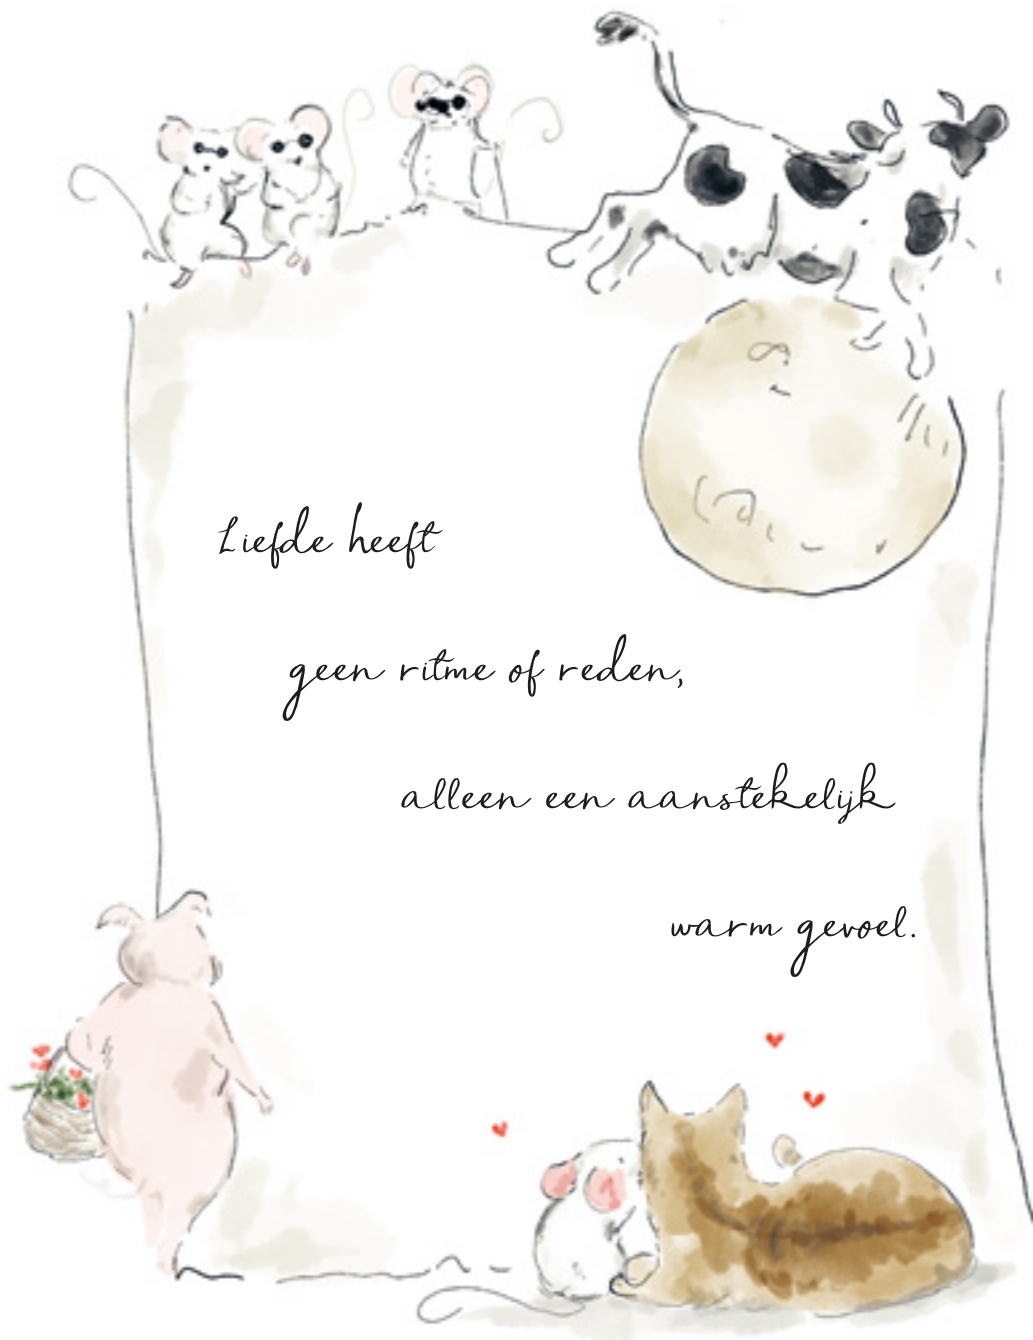 Liefde heeft
geen ritme of reden,
alleen een aanstekelijk
warm gevoel.